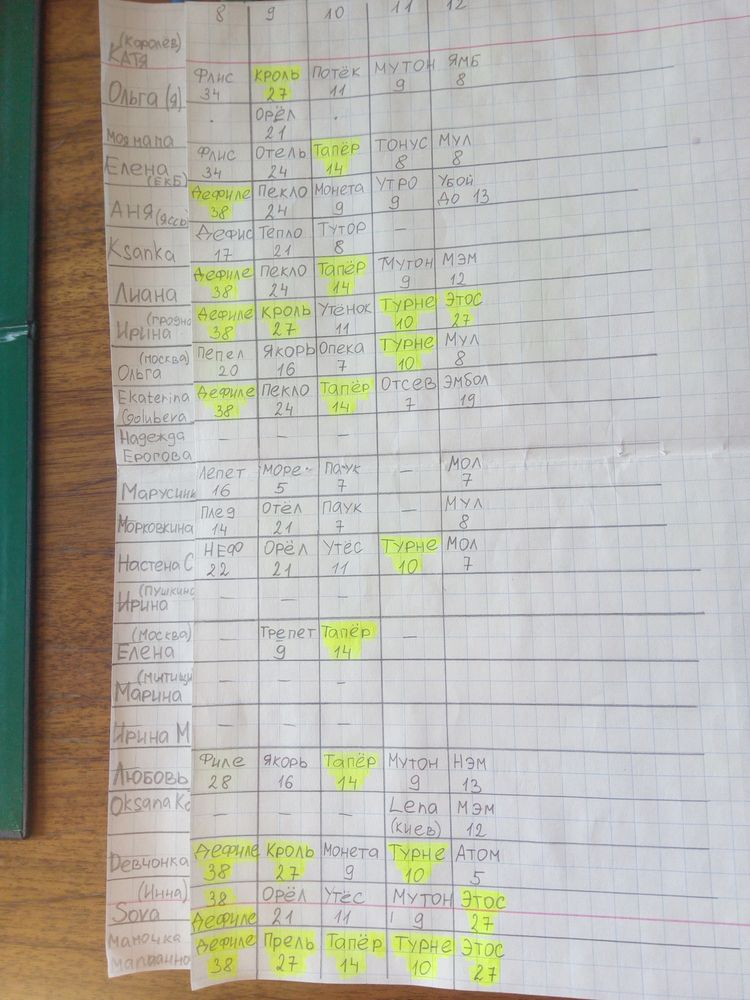 8 9 10 11 12
(Королёв)
КАТЯ
Флис Кроль Потёк Мутон Ямб
Ольга (я) 34 27 11 9 8
Орёл
21
моя мапа
Флис Отель Тапёр Тонус Мул
Елена 34 24 14 8 8
(ЕКБ)
Дефиле Пекло Монета Утро Убой
АНЯ (Яссы 38 24 9 9 до 13
Дефис Тепло Тутор —
Ksanka 17 21 8
Дефиле Пекло Тапёр Мутон Мэм
Лиана 38 24 14 9 12
Дефиле Кроль Утёнок Турне Этос
(гродно
Ирина 38 27 11 10 27
(москва) Пепел Якорь Опека Турне Мул
Ольга 20 16 7 10 8
Ekaterina Дефиле Пекло Тапёр Отсев Эмбол
Golubeva 38 24 14 7 19
Надежда — — — —
Ерогова
Лепет море Паук — Мол
Марусинь 16 5 7 7
Плед Отёл Паук — Мул
Морковкина 14 21 7 8
НЕФ Орёл Утёс Турне Мол
Настена С 22 21 11 10 7
(Пушкино
Ирина — — —
(москва) — Трепет Тапёр —
Елена 9 14
(мытищи — — —
Марина
Ирина М — — —
Филе Якорь Тапёр Мутон Нэм
Любовь 28 16 14 9 13
Oksana Ko — — — Lena Мэм
(киев) 12
Дефиле Кроль Монета Турне Атом
Девчонка 38 27 9 10 5
(Инна) 38 Орёл Утёс Мутон Этос
Sova Дефиле 21 11 9 27
маночка Дефиле Прель Тапёр Турне Этос
38 27 14 10 27